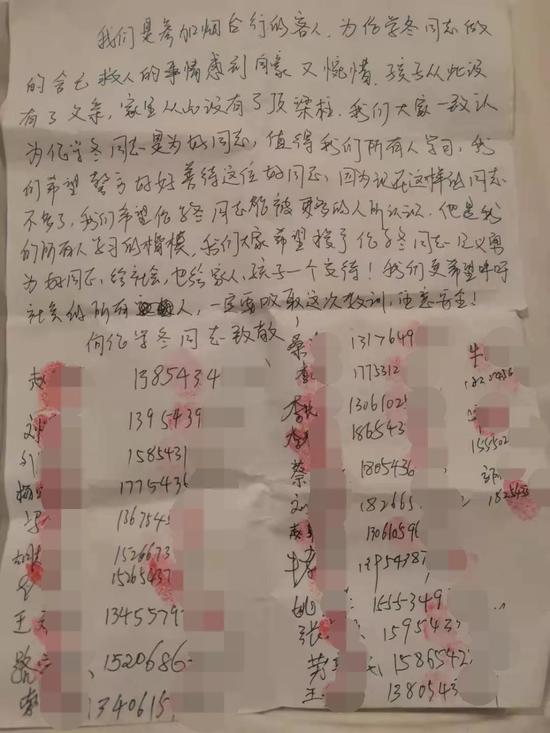 我们是参加烟台行的客人，为化学冬同志做
的舍己救人的事情感到同豪又惋惜，孩子从此没
有了父亲，家里从此没有了顶梁柱，我们大家一致认
为化学冬同志是为好同志，值得我们所有人学习，我
们希望警方好好善待这位好同志，因为现在这样的同志
不多了，我们希望化学冬同志能被更多的人所认识，他是我
们所有人学习的楷模，我们大家希望授予化学冬同志见义勇
为好同志，给社会，也给家人，孩子一个交待！我们更希望呼吁
社会的所有人，一定要吸取这次教训，注意安全！
向化学冬同志致敬
赵 1385434
刘 1395439
1585431
1775436
1367543
1526673
15265437
王 1345579
路 1520686
1340615
桑 1317649
1775312
李 1306102
186543
蔡 1805436
刘 182665
13061059
13954387
姚 1555349
张 159543
1586542
王 1380543
牛
155502
182543